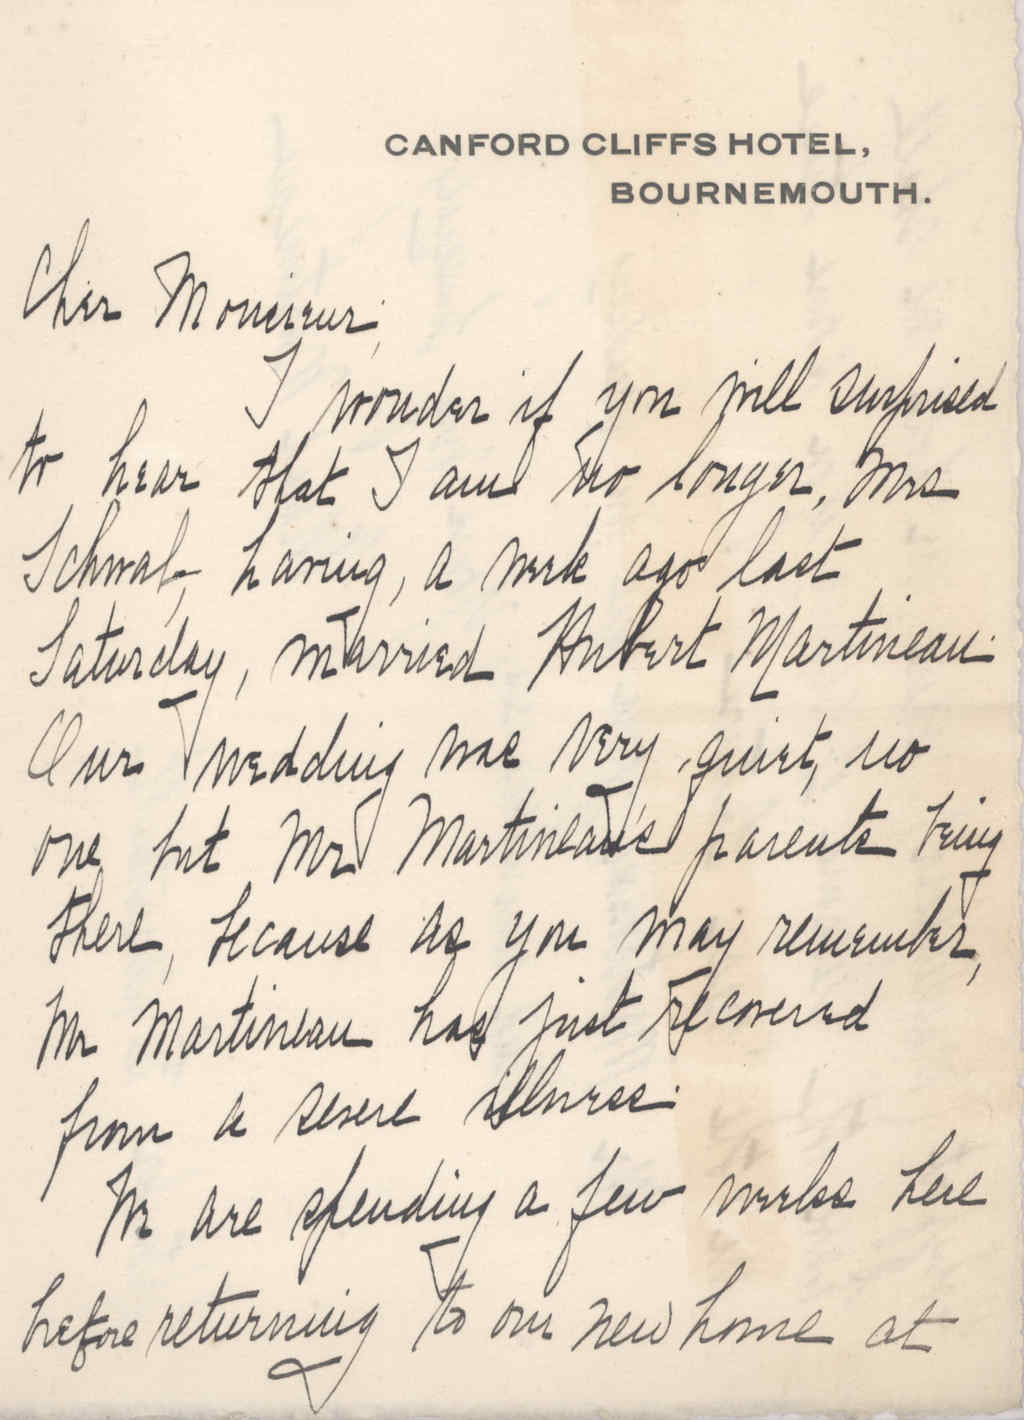 CANFORD CLIFFS HOTEL,
BOURNEMOUTH.
Cher Monsieur,
I wonder if you will surprised
to hear that I am no longer, Mrs
Schwab, having, a week ago last
Saturday, married Hubert Martineau.
Our wedding was very quiet, no
one but Mr Martineau's parents being
there, because as you may remember,
Mr Martineau has just recovered
from a severe illness.
We are spending a few weeks here
before returning to our new home at